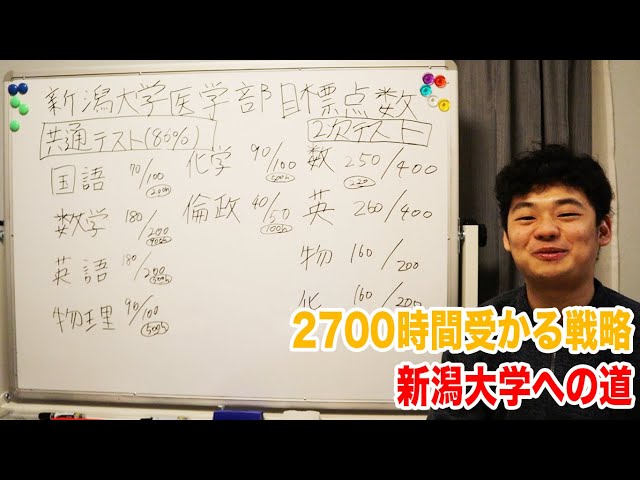 新潟大学医学部目標点数
共通テスト(86%)
国語 70/100 200h
数学 180/200 900h
英語 180/200 300h
物理 90/100 500h
化学 90/100 500h
倫政 40/50 100h
2次テスト
数 250/400 220
英 260/400
物 160/200
化 160/200
2700時間受かる戦略
新潟大学への道